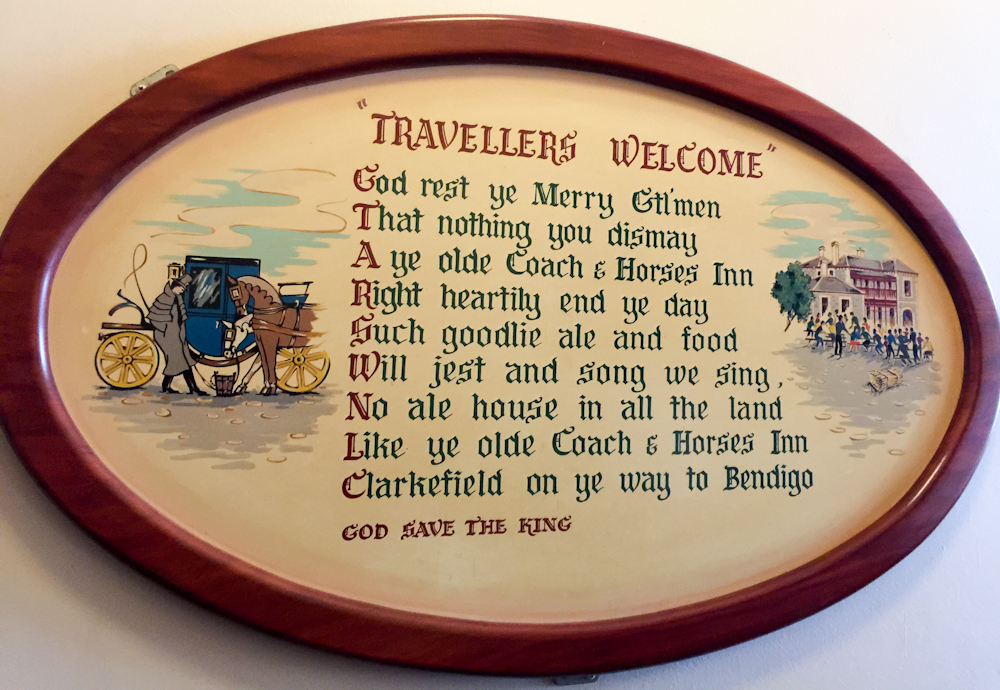 "TRAVELLERS WELCOME"
God rest ye Merry Gtl'men
That nothing you dismay
A ye olde Coach & Horses Inn
Right heartily end ye day
Such goodlie ale and food
Will jest and song we sing,
No ale house in all the land
Like ye olde Coach & Horses Inn
Clarkefield on ye way to Bendigo
GOD SAVE THE KING